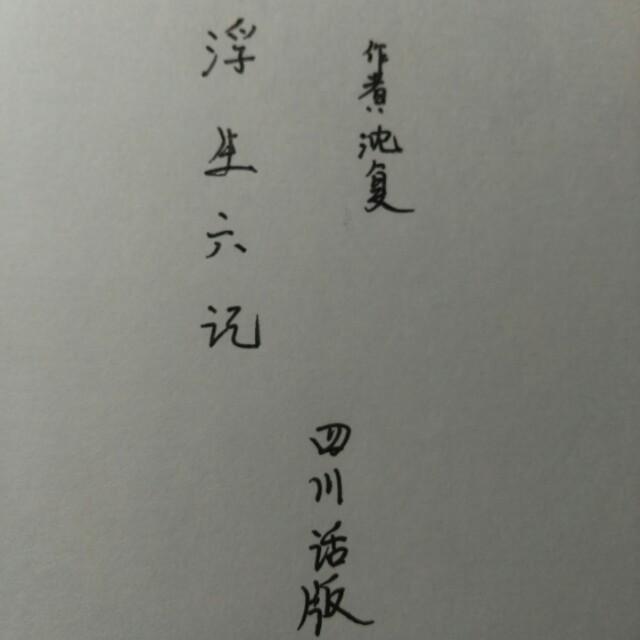 浮生六记
作者:沈复
四川话版